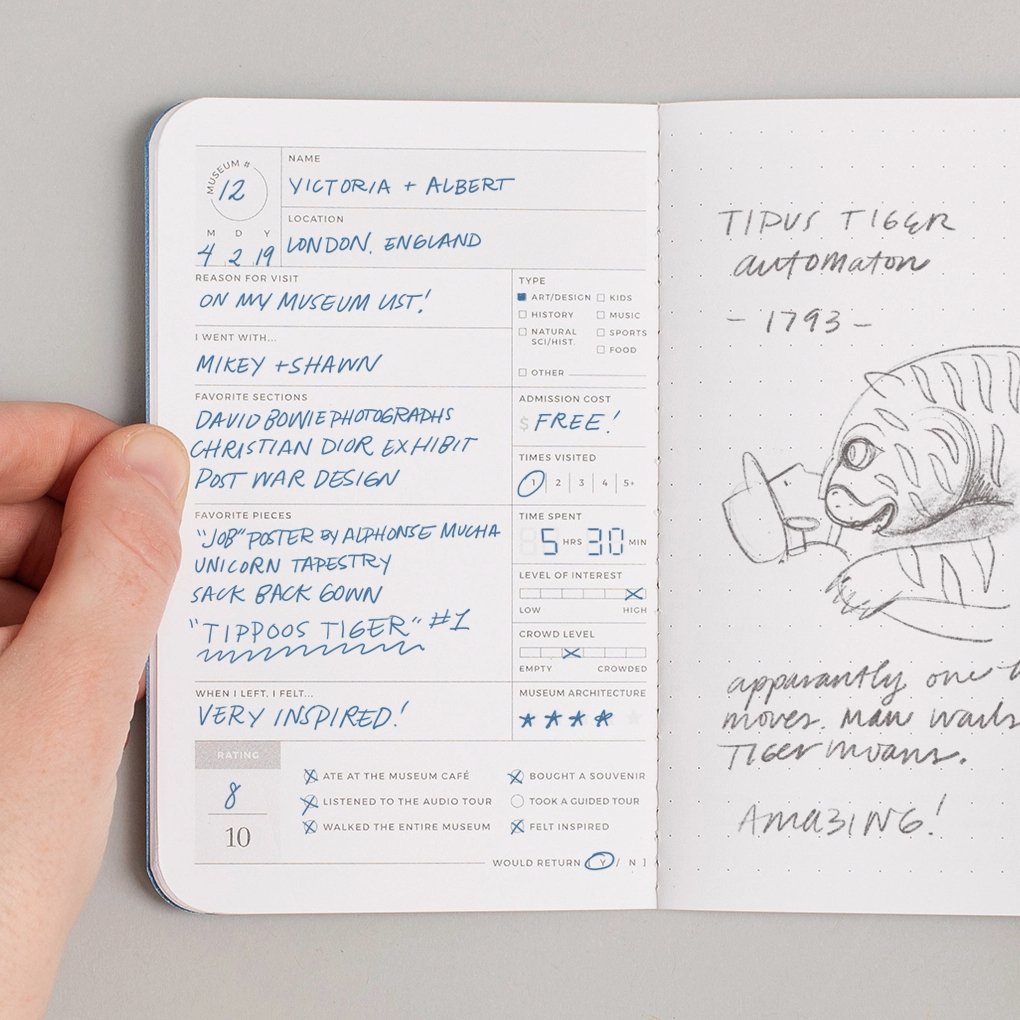 MUSEUM #
12
M D Y
4 2 19
NAME
VICTORIA + ALBERT
LOCATION
LONDON, ENGLAND
REASON FOR VISIT
ON MY MUSEUM LIST!
I WENT WITH...
MIKEY + SHAWN
FAVORITE SECTIONS
DAVID BOWIE PHOTOGRAPHS
CHRISTIAN DIOR EXHIBIT
POST WAR DESIGN
FAVORITE PIECES
"JOB" POSTER BY ALPHONSE MUCHA
UNICORN TAPESTRY
SACK BACK GOWN
"TIPPOOS TIGER" #1
WHEN I LEFT, I FELT...
VERY INSPIRED!
TYPE
ART/DESIGN KIDS
HISTORY MUSIC
NATURAL SCI/HIST. SPORTS
FOOD
OTHER
ADMISSION COST
$ FREE!
TIMES VISITED
1 | 2 | 3 | 4 | 5+
TIME SPENT
5 HRS 30 MIN
LEVEL OF INTEREST
LOW HIGH
CROWD LEVEL
EMPTY CROWDED
MUSEUM ARCHITECTURE
RATING
8
10
ATE AT THE MUSEUM CAFÉ
LISTENED TO THE AUDIO TOUR
WALKED THE ENTIRE MUSEUM
BOUGHT A SOUVENIR
TOOK A GUIDED TOUR
FELT INSPIRED
WOULD RETURN [ Y / N ]
TIPUS TIGER
automaton
- 1793 -
apparantly one
moves. Man wails
Tiger moans.
AMAZING!